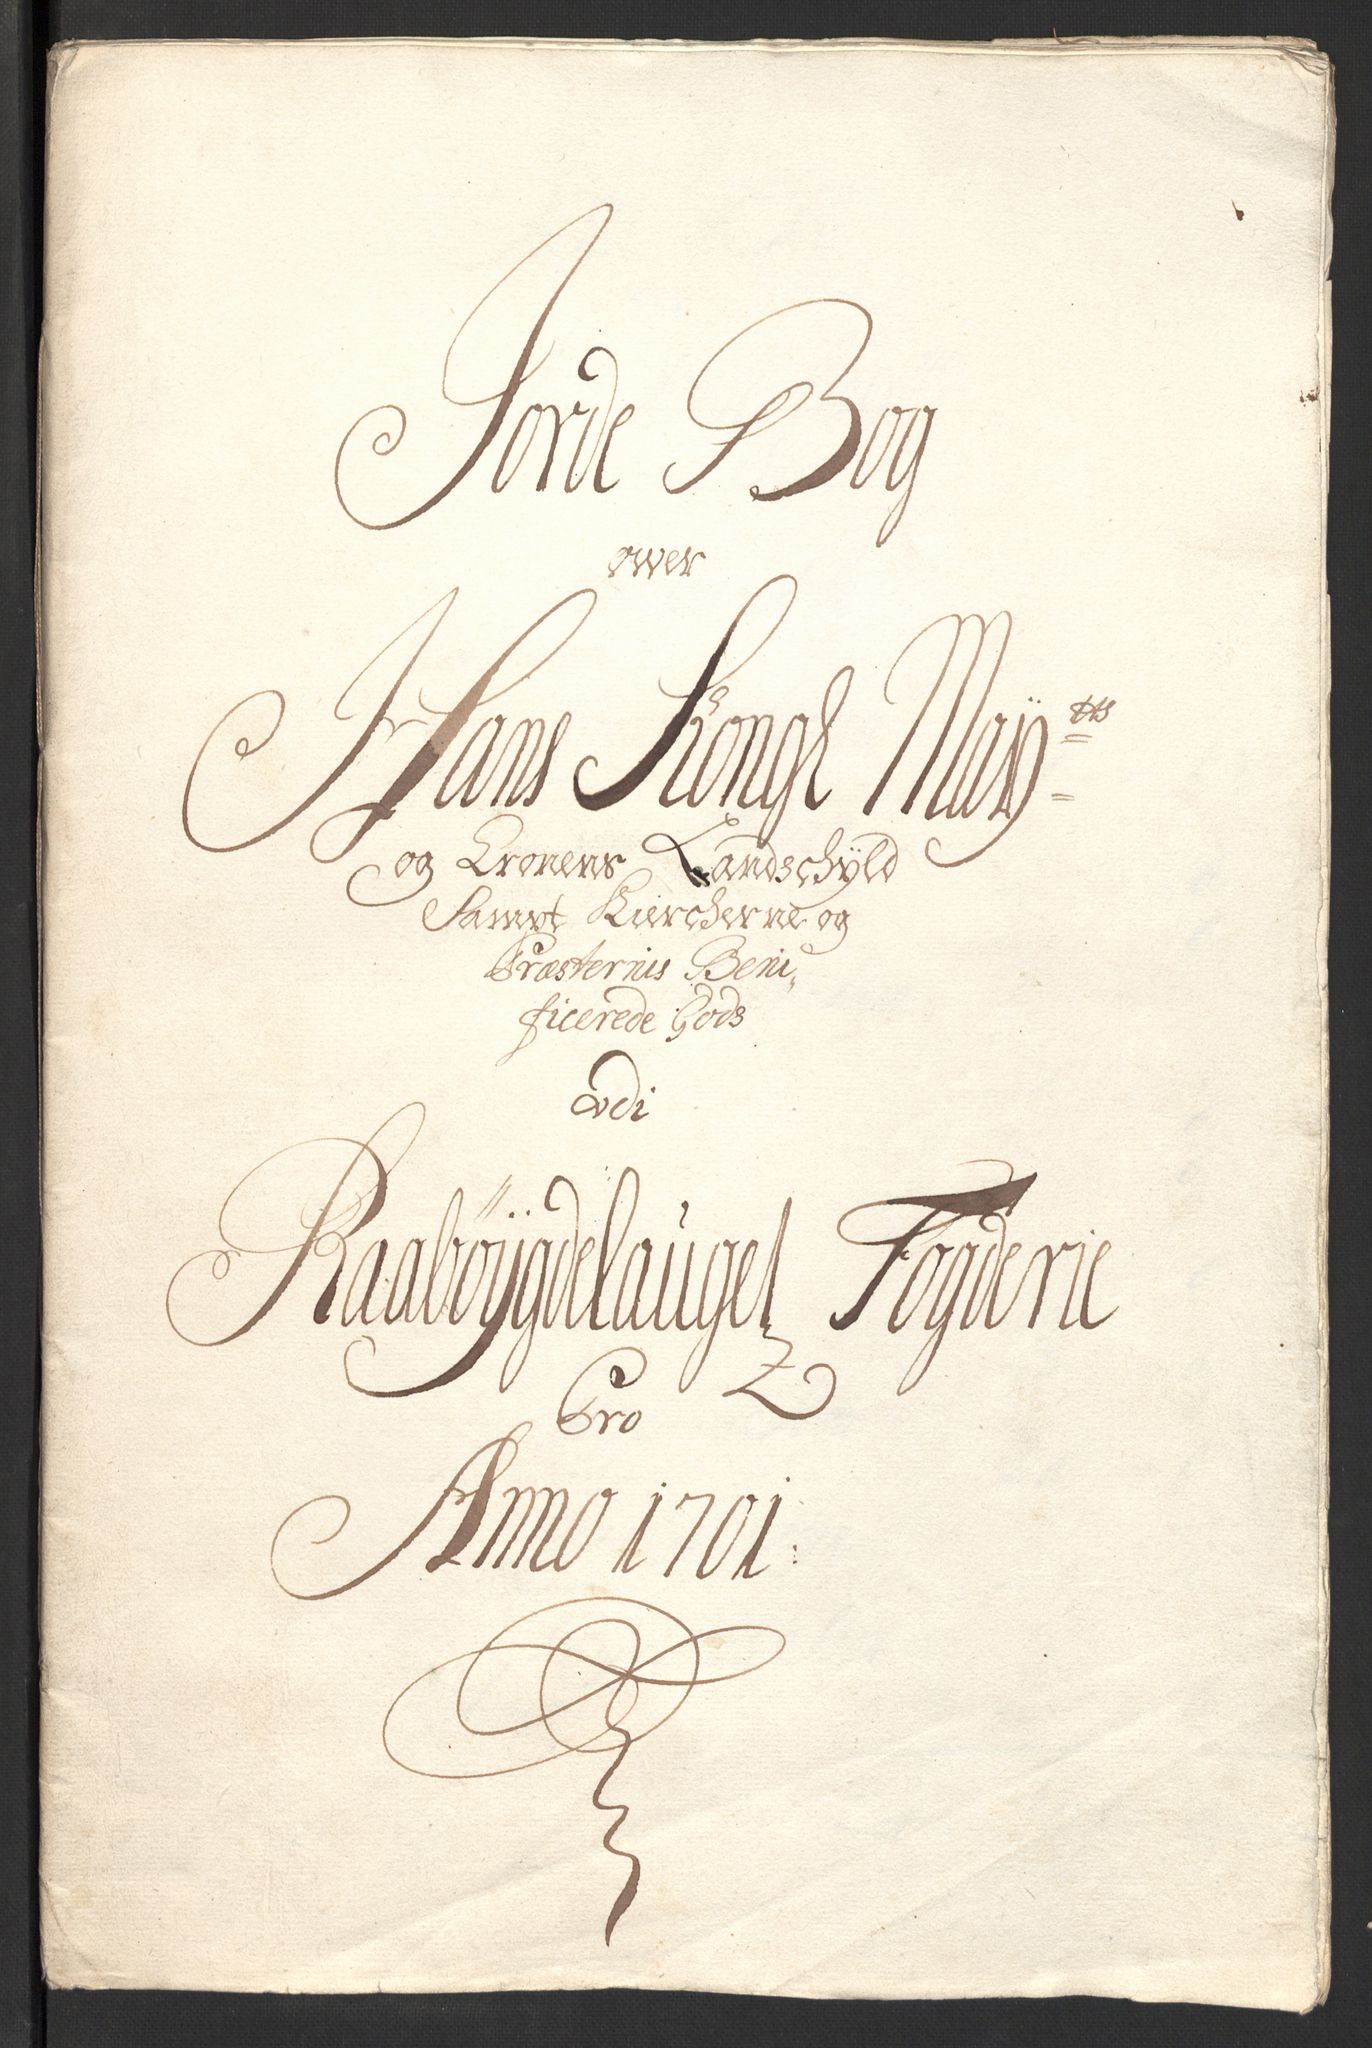 Jorde Bog
over
Hans Kongl Maÿtts
og Cronens Landschÿld
Sampt Kiercherne og
Præsternis Beni,,
ficerede Gods
udi
Raaböÿgdelauget Fogderie
Pro
Anno 1701.